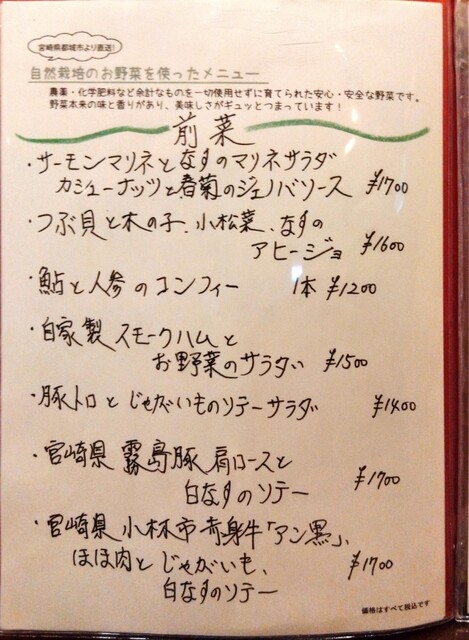 宮崎県都城市より直送!
自然栽培のお野菜を使ったメニュー
農薬・化学肥料など余計なものを一切使用せずに育てられた安心・安全な野菜です。
野菜本来の味と香りがあり、美味しさがギュッとつまっています!
前菜
・サーモンマリネとなすのマリネサラダ
カシューナッツと春菊のジェノバソース ¥1700
・つぶ貝と木の子、小松菜、なすの
アヒージョ ¥1600
・鮎と人参のコンフィー 1本 ¥1200
・自家製スモークハムと
お野菜のサラダ ¥1500
・豚トロとじゃがいものソテーサラダ ¥1400
・宮崎県 霧島豚 肩ロースと
白なすのソテー ¥1700
・宮崎県 小林市 赤身牛「アン黒」、
ほほ肉とじゃがいも、
白なすのソテー ¥1700
価格はすべて税込です